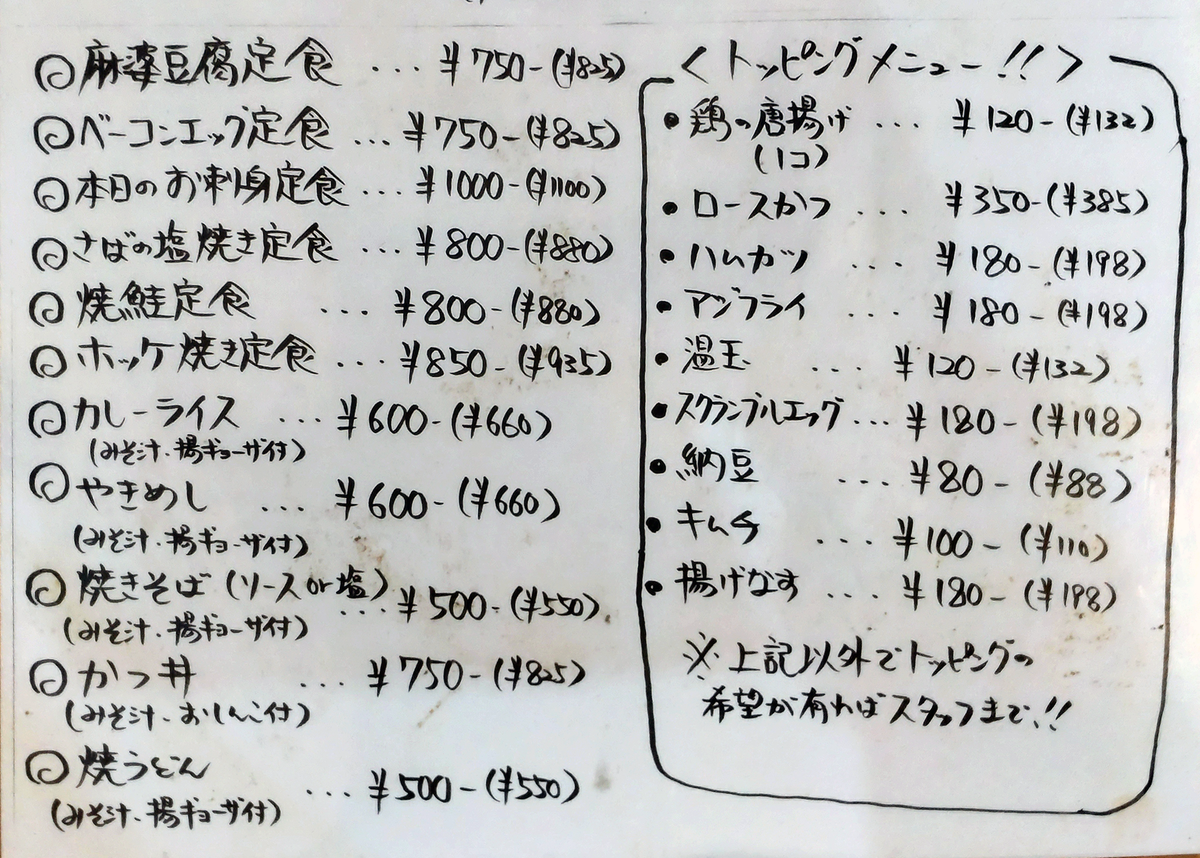 麻婆豆腐定食 ... ¥750-(¥825)
ベーコンエッグ定食 ... ¥750-(¥825)
本日のお刺身定食 ... ¥1000-(¥1100)
さばの塩焼き定食 ... ¥800-(¥880)
焼鮭定食 ... ¥800-(¥880)
ホッケ焼き定食 ... ¥850-(¥935)
カレーライス ... ¥600-(¥660)
(みそ汁、揚ギョーザ付)
やきめし ... ¥600-(¥660)
(みそ汁、揚ギョーザ付)
焼きそば(ソースor塩) ... ¥500-(¥550)
(みそ汁、揚ギョーザ付)
かつ丼 ... ¥750-(¥825)
(みそ汁、おしんこ付)
焼うどん ... ¥500-(¥550)
(みそ汁、揚ギョーザ付)
<トッピングメニュー!!>
・鶏の唐揚げ ... ¥120-(¥132)
(1コ)
・ロースかつ ... ¥350-(¥385)
・ハムカツ ... ¥180-(¥198)
・アジフライ ... ¥180-(¥198)
・温玉 ... ¥120-(¥132)
・スクランブルエッグ... ¥180-(¥198)
・納豆 ... ¥80-(¥88)
・キムチ ... ¥100-(¥110)
・揚げなす ... ¥180-(¥198)
※上記以外でトッピングの
希望が有ればスタッフまで、!!